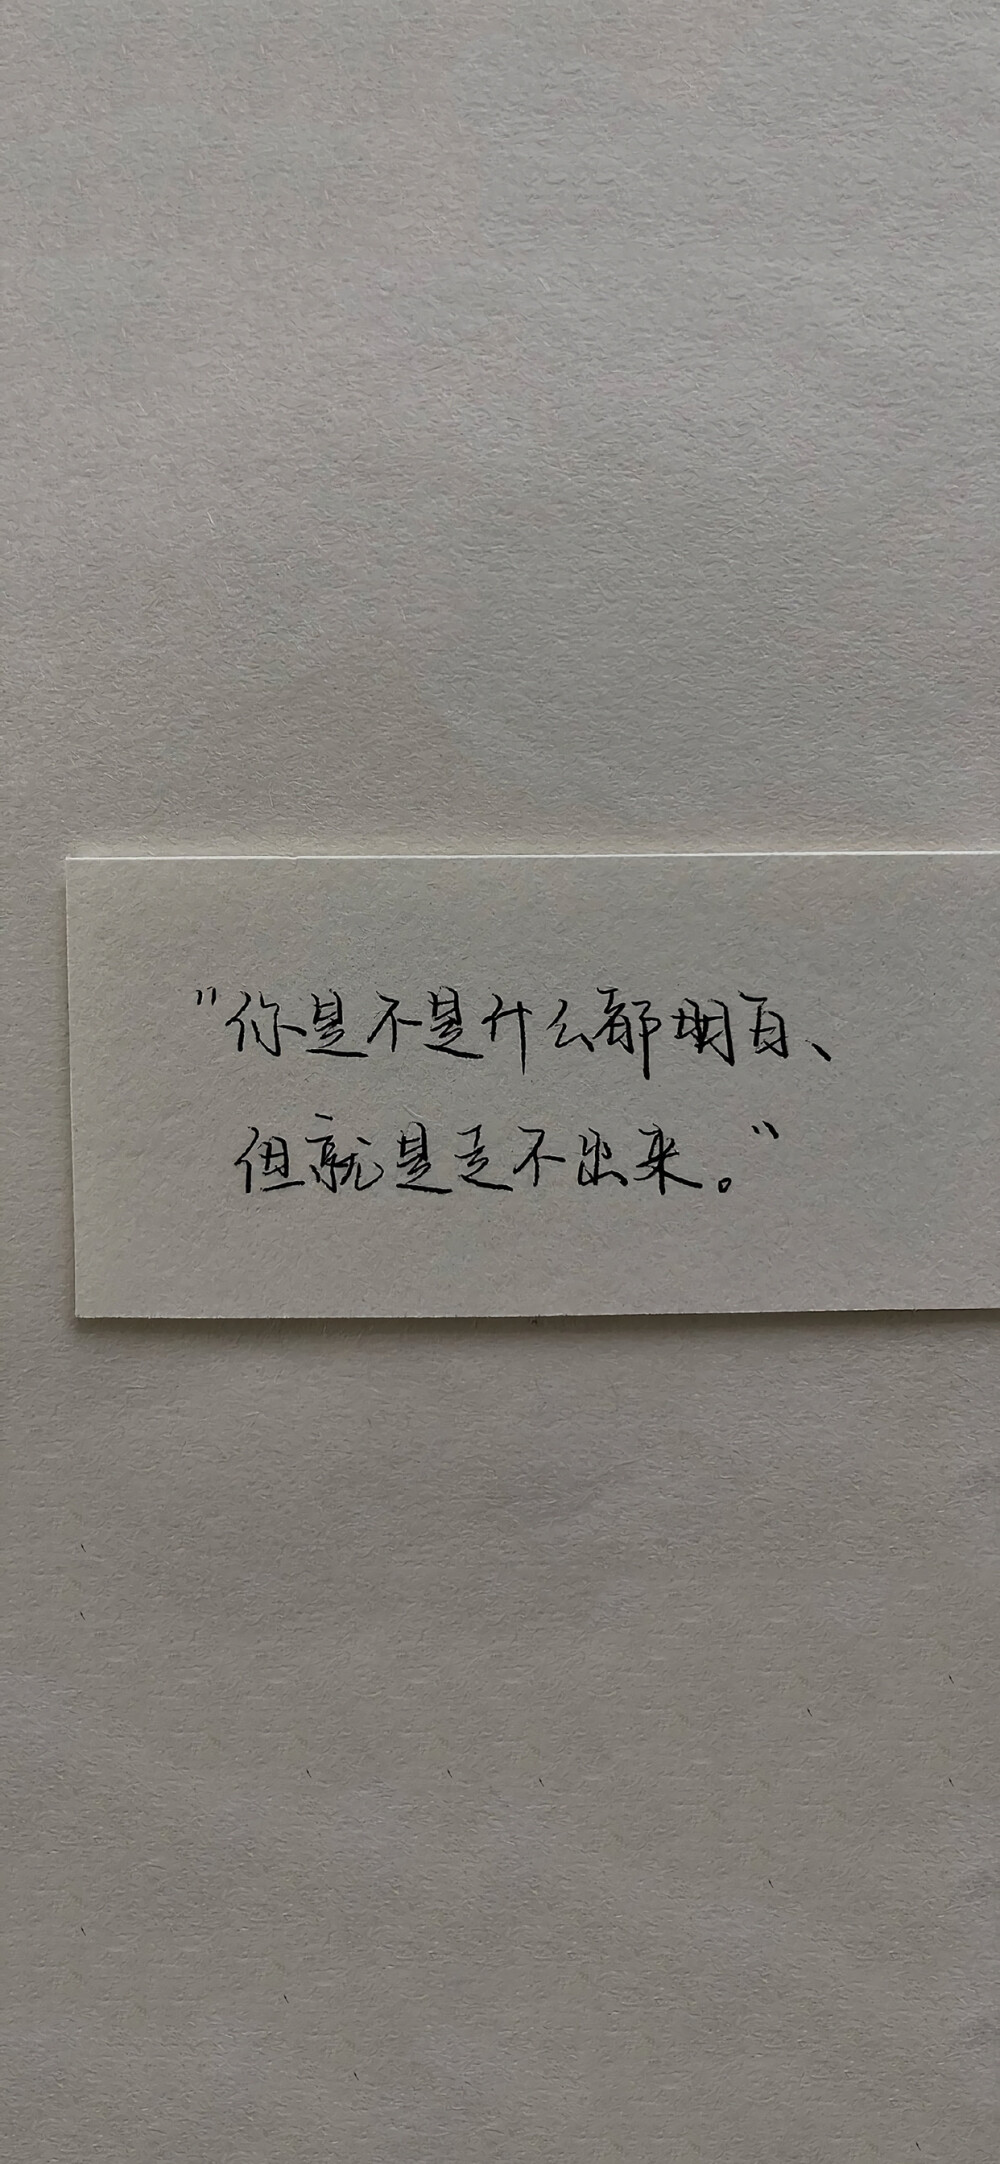 "你是不是什么都明白、
但就是走不出来。"